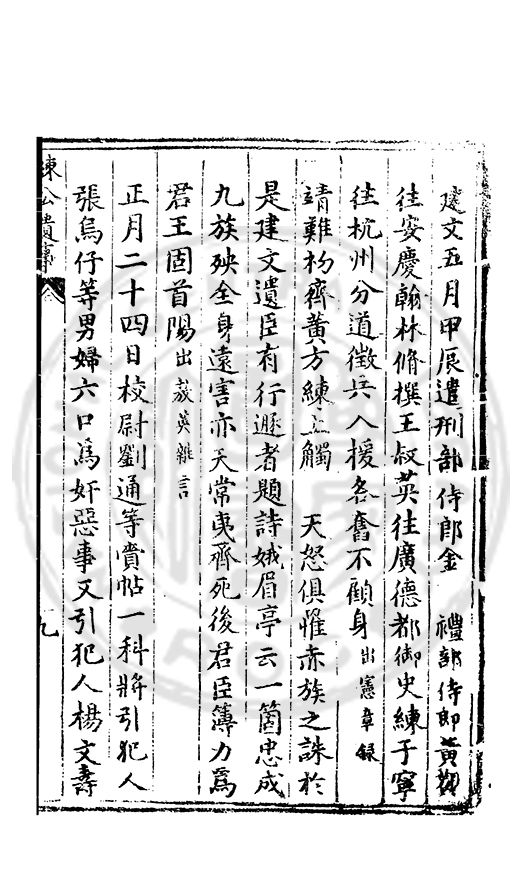 建文五月甲辰遣刑部侍郎金　禮部侍郎黃觀
往安慶翰林脩撰王叔英往廣德都御史練子寧
往杭州分道徵兵入援各奮不顧身出憲章錄
靖難初齊黃方練上觸　天怒俱罹赤族之誅於
是建文遺臣有行遯者題詩娥眉亭云一箇忠成
九族殃全身遠害亦天常夷齊死後君臣薄力爲
君王固首陽出菽英雜言
正月二十四日校尉劉通等賫帖一科將引犯人
張烏仔等男婦六口爲奸惡事又引犯人楊文壽
練公遺事
九